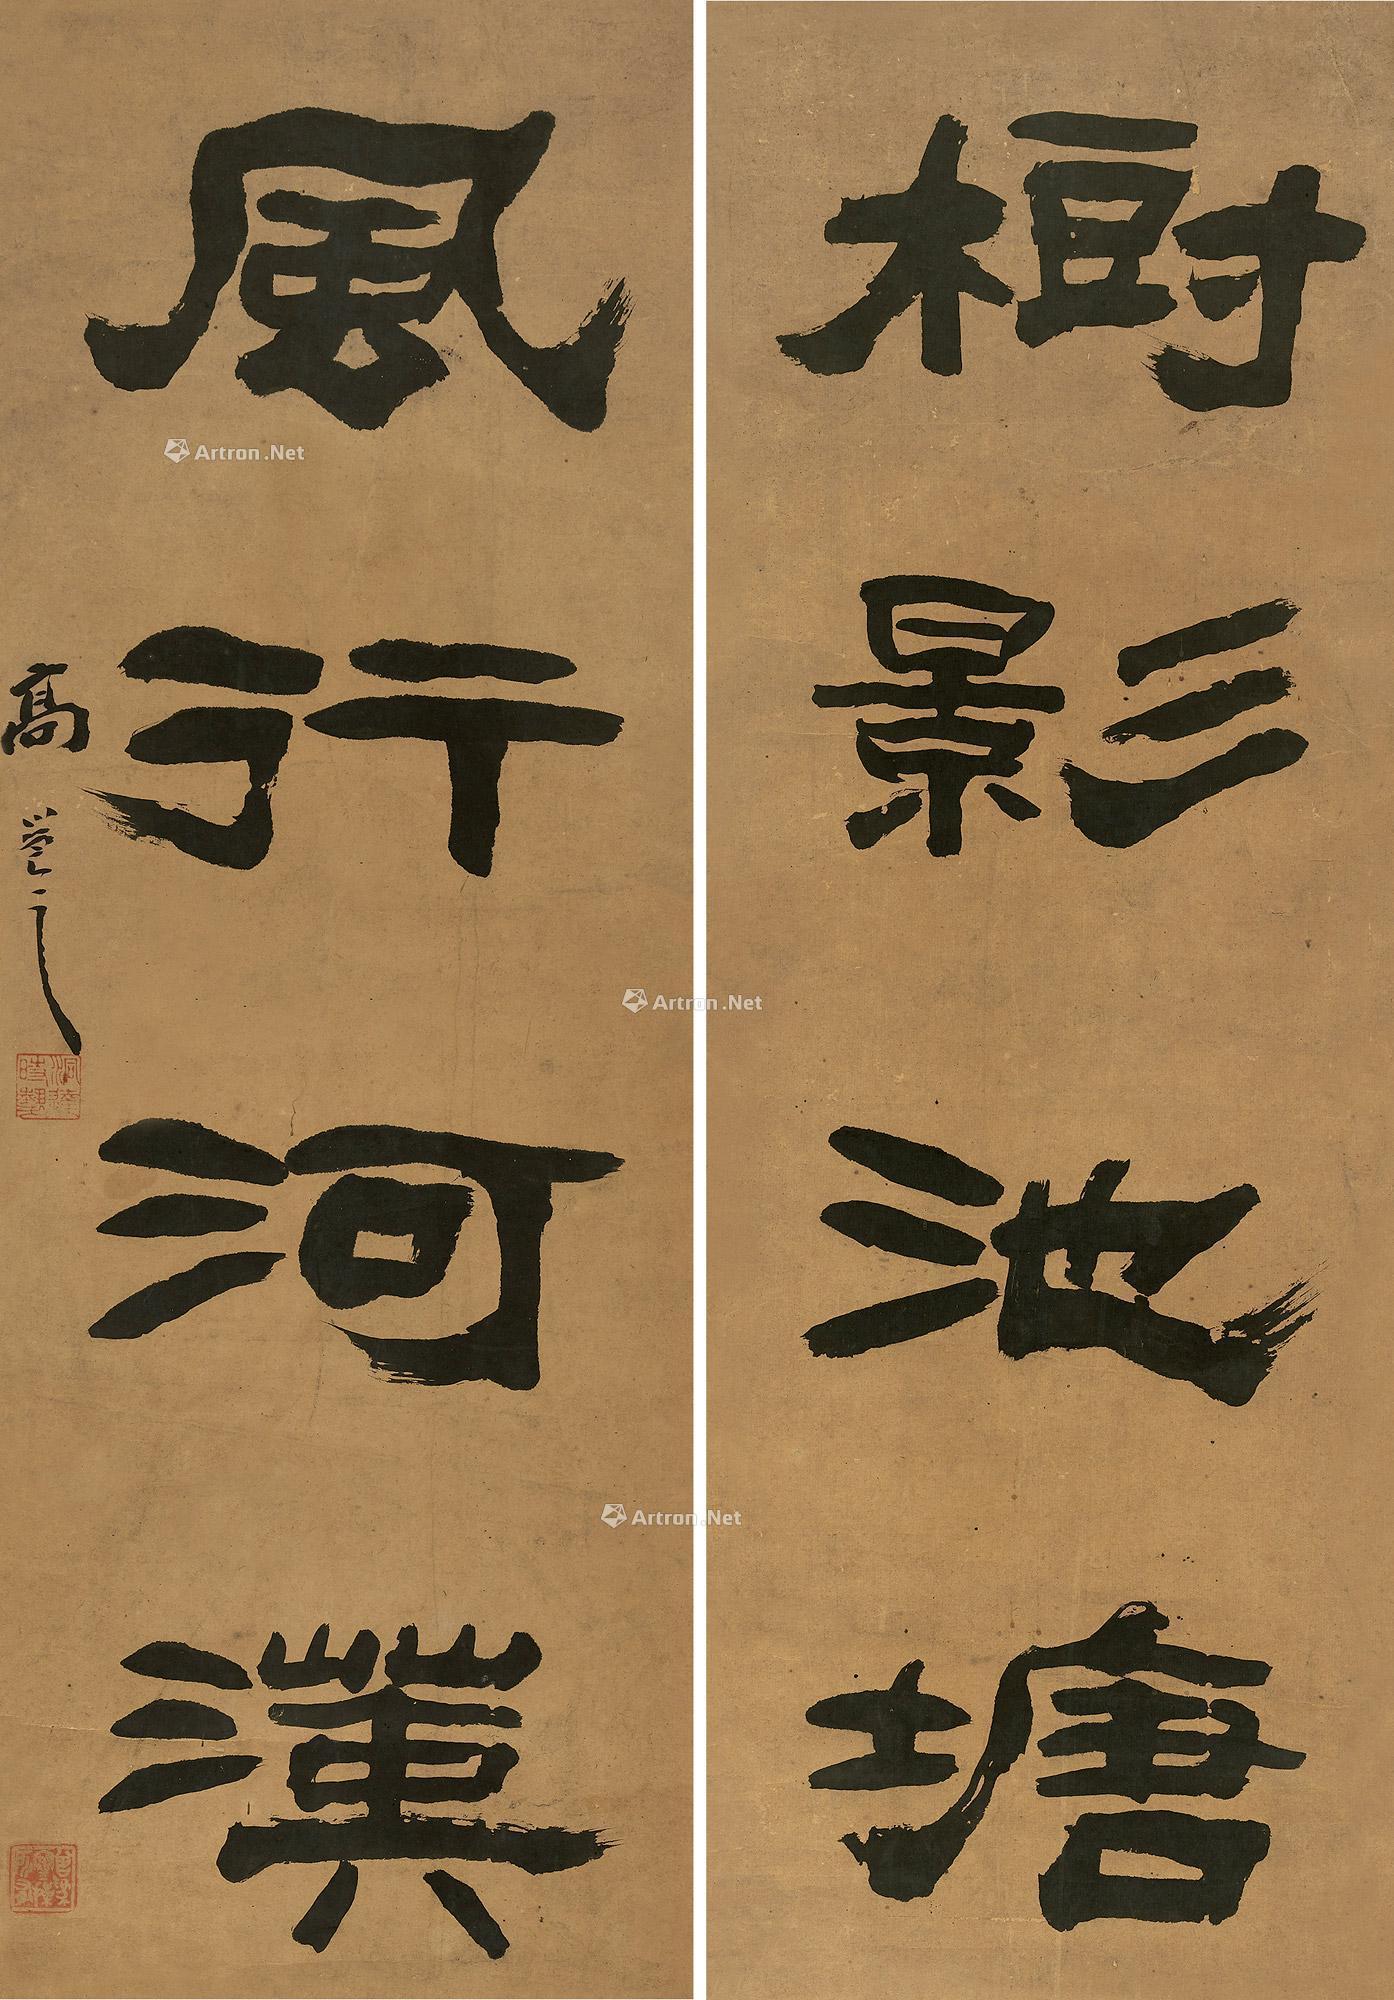 樹影池塘
風行河漢
高邕之
Artron.Net
Artron.Net
Artron.Net